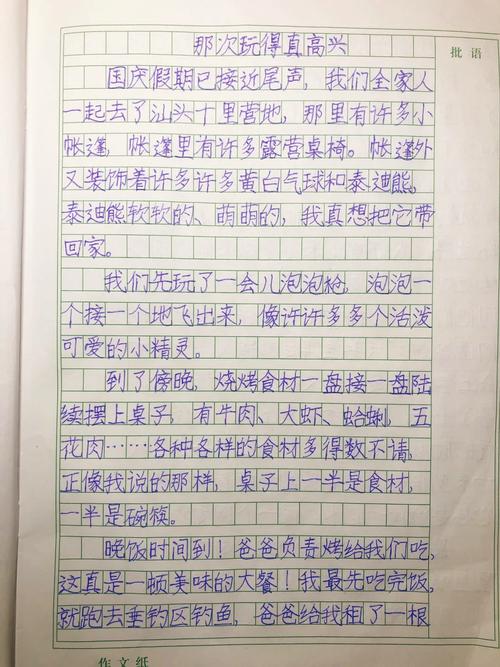 批语
那次玩得真高兴
国庆假期已接近尾声，我们全家人
一起去了汕头十里营地，那里有许多小
帐篷，帐篷里有许多露营桌椅。帐篷外
又装饰着许多许多黄白气球和泰迪熊，
泰迪熊软软的、萌萌的，我真想把它带
回家。
我们先玩了一会儿泡泡枪，泡泡一
个接一个地飞出来，像许许多多个活泼
可爱的小精灵。
到了傍晚，烧烤食材一盘接一盘陆
续摆上桌子，有牛肉、大虾、蛤蜊，五
花肉……各种各样的食材多得数不请，
正像我说的那样，桌子上一半是食材，
一半是碗筷。
晚饭时间到！爸爸负责烤给我们吃，
这真是一顿美味的大餐！我最先吃完饭，
就跑去垂钓区钓鱼，爸爸给我租了一根
作文纸